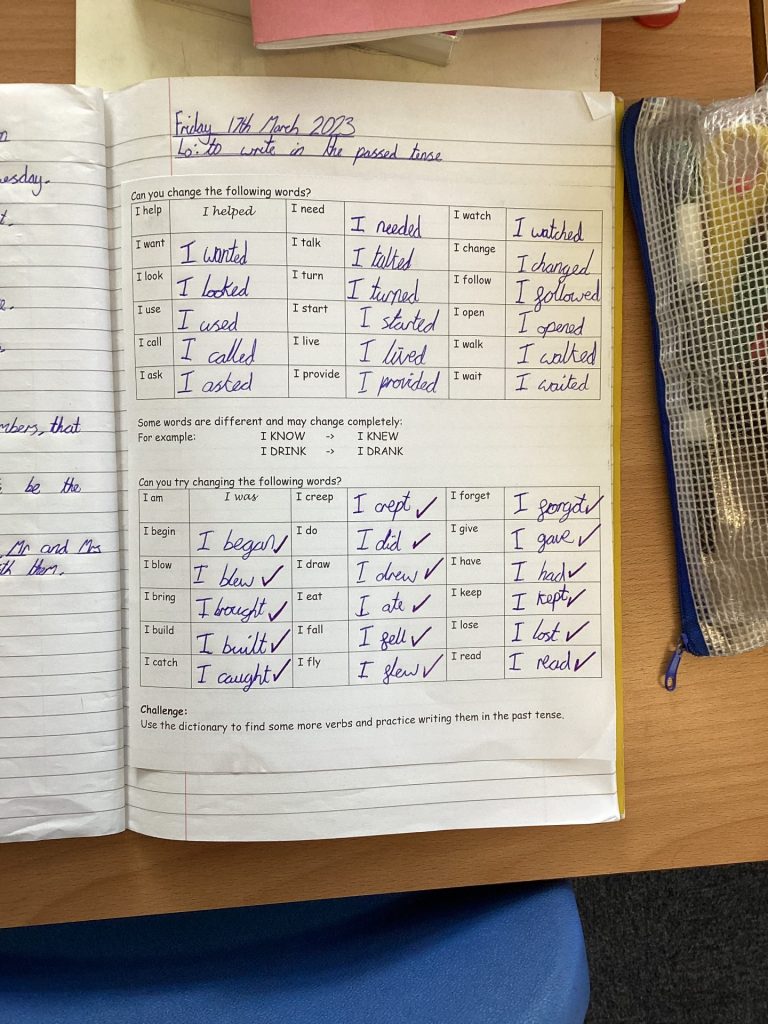 Friday 17th March 2023
Lo: to write in the passed tense
Can you change the following words?
I help I helped I need I needed I watch I watched
I want I wanted I talk I talked I change I changed
I look I looked I turn I turned I follow I followed
I use I used I start I started I open I opened
I call I called I live I lived I walk I walked
I ask I asked I provide I provided I wait I waited
Some words are different and may change completely:
For example: I KNOW -> I KNEW
I DRINK -> I DRANK
Can you try changing the following words?
I am I was I creep I crept ✓ I forget I forgot ✓
I begin I began ✓ I do I did ✓ I give I gave ✓
I blow I blew ✓ I draw I drew ✓ I have I had ✓
I bring I brought ✓ I eat I ate ✓ I keep I kept ✓
I build I built ✓ I fall I fell ✓ I lose I lost ✓
I catch I caught ✓ I fly I flew ✓ I read I read ✓
Challenge:
Use the dictionary to find some more verbs and practice writing them in the past tense.
that
be the
Mr and Mrs
them.